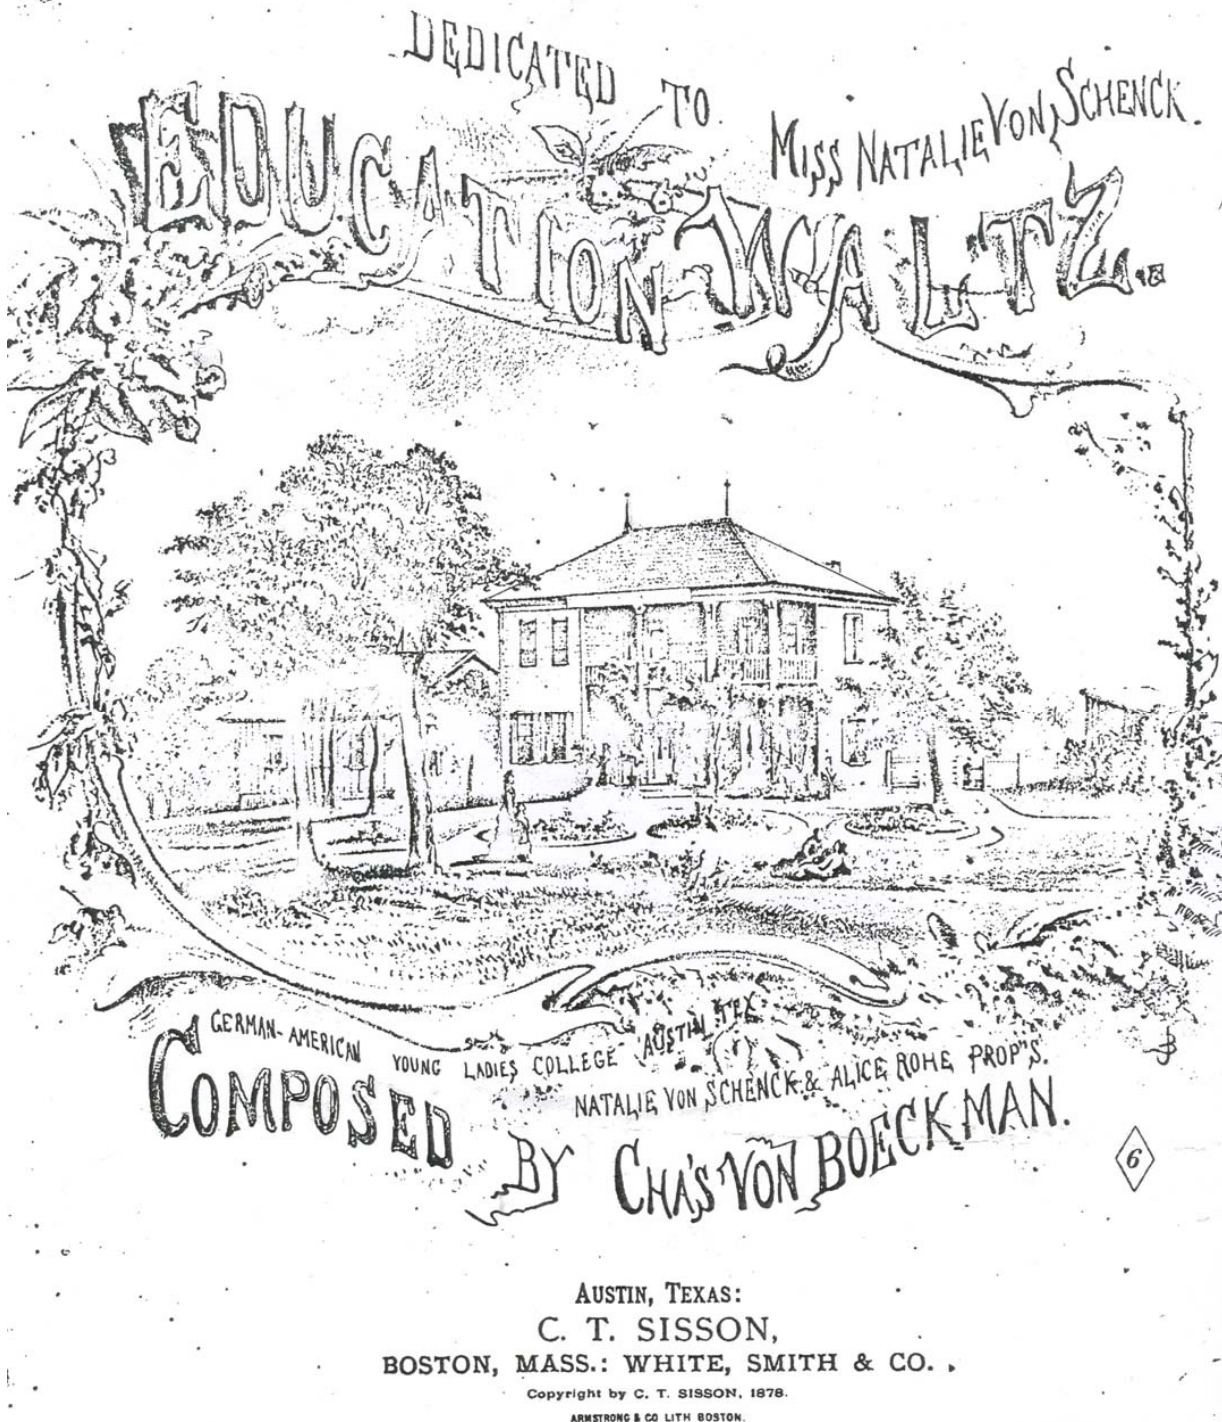 DEDICATED TO MISS NATALIE VON SCHENCK.
EDUCATION WALTZ.
GERMAN-AMERICAN YOUNG LADIES COLLEGE AUSTIN TEX.
NATALIE VON SCHENCK & ALICE ROHE PROP"S.
COMPOSED BY CHA'S VON BOECKMAN.
6
AUSTIN, TEXAS:
C. T. SISSON,
BOSTON, MASS.: WHITE, SMITH & CO.
Copyright by C. T. SISSON, 1878.
ARMSTRONG & CO LITH BOSTON.